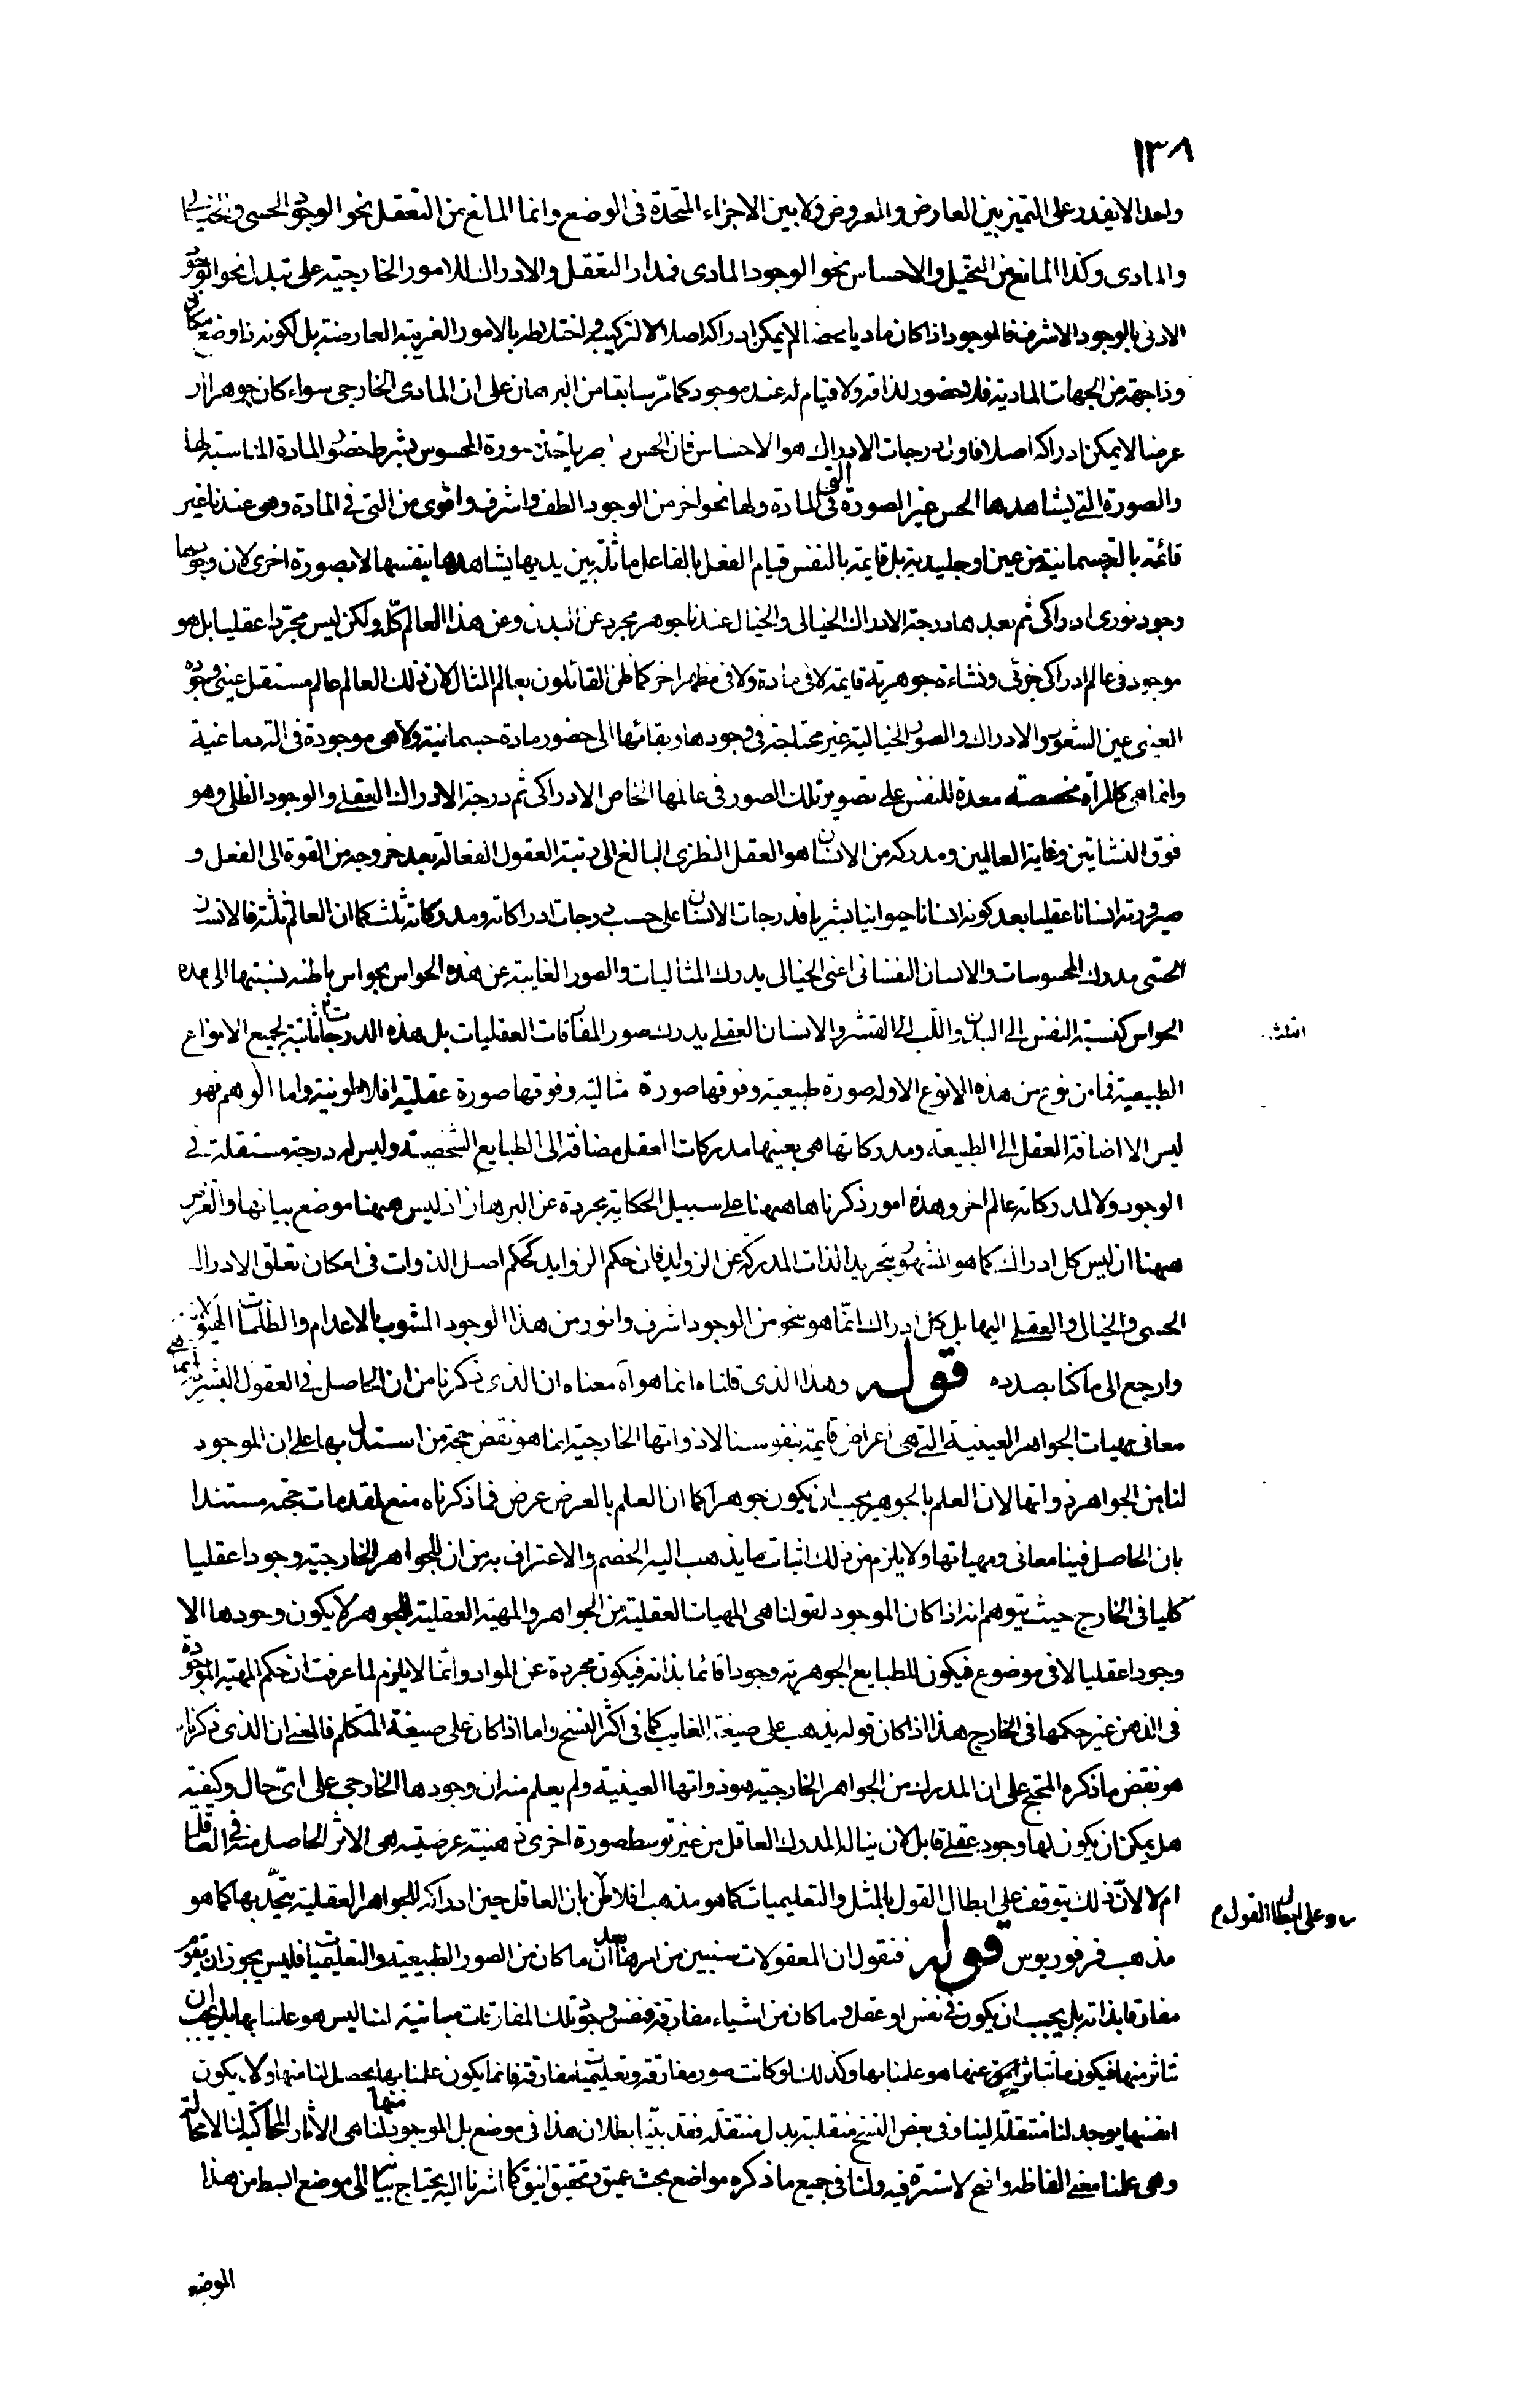 ١٣٨
ولهذا لا يقدر على التميز بين العارض والمعروض ولا بين الاجزاء المتحدة فى الوضع وانما المانع من التعقل نحو الوجود الحسى والخيالى
والمادى وكذا المانع من التخيل والاحساس نحو الوجود المادى فمدار التعقل والادراك للامور الخارجية على تبدل نحو الوجود
الادنى بالوجود الاشرف فالموجود اذا كان ماديا محضا لا يمكن ادراكه اصلا لا لتركيبه واختلاطه بالامور الغريبة العارضة بل لكونه ذا وضع مكان
وذا جهة من الجهات المادية فلا حضور لذاته ولا قيام له عند موجود كما مرّ سابقا من البرهان على ان المادى الخارجى سواء كان جوهرا او
عرضا لا يمكن ادراكه اصلا فاول درجات الادراك هو الاحساس فان الحس صورة المحسوس بشرط حضور المادة المناسبة لها
والصورة التى يشاهدها الحس غير الصورة التى فى المادة ولها نحو اخر من الوجود الطف واشرف واقوى من التى فى المادة وهى عندنا غير
قائمة بالة جسمانية من عين او جليدية بل قايمة بالنفس قيام الفعل بالفاعل ماثلة بين يديها يشاهدها بنفسها لا بصورة اخرى لان وجودها
وجود نورى ادراكى ثم بعدها درجة الادراك الخيالى والخيال عندنا جوهر مجرد عن البدن وعن هذا العالم كلّه ولكن ليس مجرّدا عقليا بل هو
موجود فى عالم ادراكى جزئى ونشاءة جوهرية قايمة لا فى مادة ولا فى مظهر اخر كما ظن القائلون بعالم المثال لان ذلك العالم عالم مستقل عينى وجوده
العينى عين الشعور والادراك والصور الخيالية غير محتاجة فى وجودها وبقائها الى حضور مادة جسمانية ولا هى موجودة فى الة دماغية
وانما هى كالمرآة مخصصة معدة للنفس على تصوير تلك الصور فى عالمها الخاص الادراكى ثم درجة الادراك العقلى والوجود الظلى وهو
فوق النشاتين وغاية العالمين ومدركه من الانسان هو العقل النظرى البالغ الى رتبة العقول الفعالة بعد خروجه من القوة الى الفعل و
صيرورته انسانا عقليا بعد كونه انسانا حيوانيا بشريا فدرجات الانسان على حسب درجات ادراكاته ومدركاته ثلث كما ان العالم ثلثة فالانسان
الحسى مدرك المحسوسات والانسان النفسانى اعنى الخيالى يدرك المثاليات والصور الغايبة عن هذه الحواس بحواس باطنة نسبتها الى هذه
الحواس كنسبة النفس الى البدن واللب الى القشر والانسان العقلى يدرك صور المفارقات العقليات بل هذه الدرجات ثابتة لجميع الانواع
الطبيعية فما من نوع من هذه الانوع الا وله صورة طبيعية وفوقها صورة مثالية وفوقها صورة عقلية افلاطونية واما الوهم فهو
ليس الا اضافة العقل الى الطبيعة ومدركاتها هى بعينها مدركات العقل مضافة الى الطبايع الشخصية وليس له درجة مستقلة فى
الوجود ولا لمدركاته عالم اخر وهذه امور ذكرناها ههنا على سبيل الحكاية مجردة عن البرهان اذ ليس ههنا موضع بيانها والغرض
ههنا ان ليس كل ادراك كما هو المشهور بتجريد الذات المدركة عن الزوايد فان حكم الزوايد كحكم اصل الذوات فى امكان تعلق الادراك
الحسى والخيالى والعقلى اليها بل كل ادراك انّما هو بنحو من الوجود اشرف وانور من هذا الوجود المشوب بالاعدام والظلمات الهيولانية
وارجع الى ما كنا بصدده قوله وهذا الذى قلناه انما هو آه معناه ان الذى ذكرنا من ان الحاصل فى العقول البشرية انما هى
معانى مهيات الجواهر العينية التى هى اعراض قايمة بنفوسنا لا ذواتها الخارجية انما هو نقض حجة من استدل بها على ان الموجود
لنا من الجواهر ذواتها لان العلم بالجوهر يجب ان يكون جوهرا كما ان العلم بالعرض عرض فما ذكرناه منع لمقدمات حجته مستندا
بان الحاصل فينا معانى ومهياتها ولا يلزم من ذلك اثبات ما يذهب اليه الخصم والاعتراف به من ان للجواهر الخارجية وجودا عقليا
كليا فى الخارج حيث يتوهم انه اذا كان الموجود لعقولنا هى المهيات العقلية من الجواهر والمهية العقلية للجوهر لا يكون وجودها الا
وجودا عقليا لا فى موضوع فيكون للطبايع الجوهرية وجودا قائما بذاته فيكون مجردة عن المواد وانما لا يلزم لما عرفت ان حكم المهية الموجودة
فى الذهن غير حكمها فى الخارج هذا اذا كان قوله يذهب على صيغة الغايب كما فى اكثر النسخ واما اذا كان على صيغة المتكلم فالمعنى ان الذى ذكرناه
هو نقض ما ذكره المحتج على ان المدرك من الجواهر الخارجية هو ذواتها العينية ولم يعلم منه ان وجودها الخارجى على اىّ حال وكيفية
هل يمكن ان يكون لها وجود عقلى قابل لان ينالها المدرك العاقل من غير توسط صورة اخرى ذهنية عرضية هى الاثر الحاصل منه فى العاقل
ام لا لانّ ذلك يتوقف على ابطال القول بالمثل والتعليميات كما هو مذهب افلاطن بان العاقل حين ادراكه للجواهر العقلية يتحّد بها كما هو
وعلى ابطال القول م
مذهب فرفوريوس قوله فنقول ان المعقولات سنبين من امرها بعد ان ما كان من الصور الطبيعية والتعليميات فليس يجوز ان يقوم
مفارقا بذاته بل يجب ان يكون فى نفس او عقل وما كان من اشياء مفارقة فنفس وجود تلك المفارقات مباينة لنا ليس هو علمنا بها بل يجب ان
نتاثر منها فيكون ما نتاثر عنها هو علمنا بها وكذلك لو كانت صور مفارقة وتعليميات مفارقة فانما يكون علمنا بها ما يحصل لنا منها ولا يكون
انفسها يوجد لنا منتقلة الينا وفى بعض النسخ منقلبة بدل منتقلة فقد بيّنا بطلان هذا فى موضع بل الموجود منها لنا هى الاثار المحاكية لنا لا محالة
وهى علمنا معنى الفاظه واضح لا سترة فيه ولنا فى جميع ما ذكره مواضع بحث عميق وتحقيق انيق كما اشرنا اليه يحتاج بيانها الى موضع ابسط من هذا
الموضع